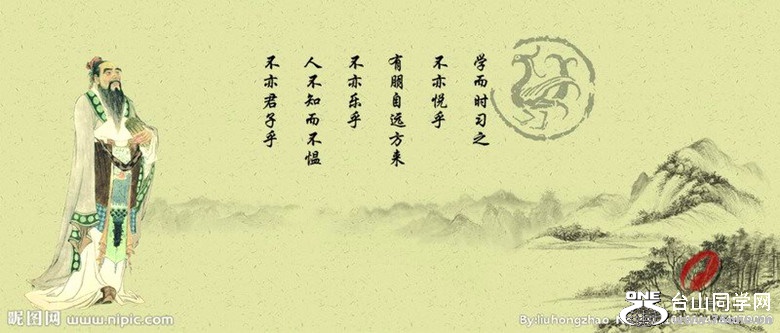 学而时习之
不亦悦乎
有朋自远方来
不亦乐乎
人不知而不愠
不亦君子乎
昵图网 www.nipic.com
By:liuhongzhao
ONE
台山同学网